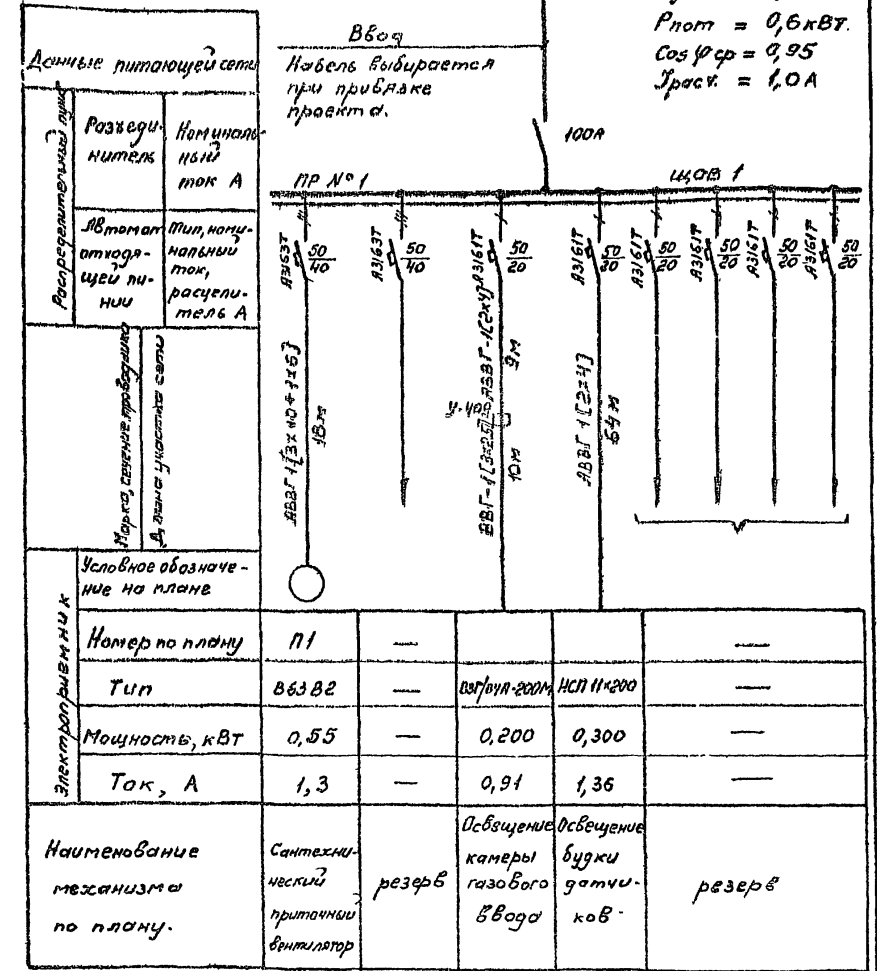 Pпот = 0,6кВт.
Cos φ ср = 0,95
Iрасч. = 1,0А
Ввод
Кабель выбирается
при привязке
проекта.
100А
ПР №1
ЩОВ 1
Данные питающей сети
Распределительный пункт
Разъеди-
нитель
Номиналь-
ный
ток А
Автомат
отходя-
щей ли-
нии
Тип, номи-
нальный
ток,
расцепи-
тель А
А3163Т 50/40
А3163Т 50/40
А3161Т 50/20
А3161Т 50/30
А3161Т 50/20
А3161Т 50/20
А3161Т 50/20
А3161Т 50/20
Марка, сечение проводника
Длина участка сети
АВВГ 1[3×10+1×6]
18м
АВВГ-1[2×4]
9м
У-409
ВВГ-1[3×2,5]
10м
АВВГ 1[2×4]
64м
Электроприемник
Условное обозначе-
ние на плане
Номер по плану П1 — —
Тип В63В2 — ВЗГ/В4А-200М НСП 11×200 —
Мощность, кВт 0,55 — 0,200 0,300 —
Ток, А 1,3 — 0,91 1,36 —
Наименование
механизма
по плану.
Сантехни-
ческий
приточный
вентилятор
резерв
Освещение
камеры
газового
ввода
Освещение
будки
датчи-
ков
резерв